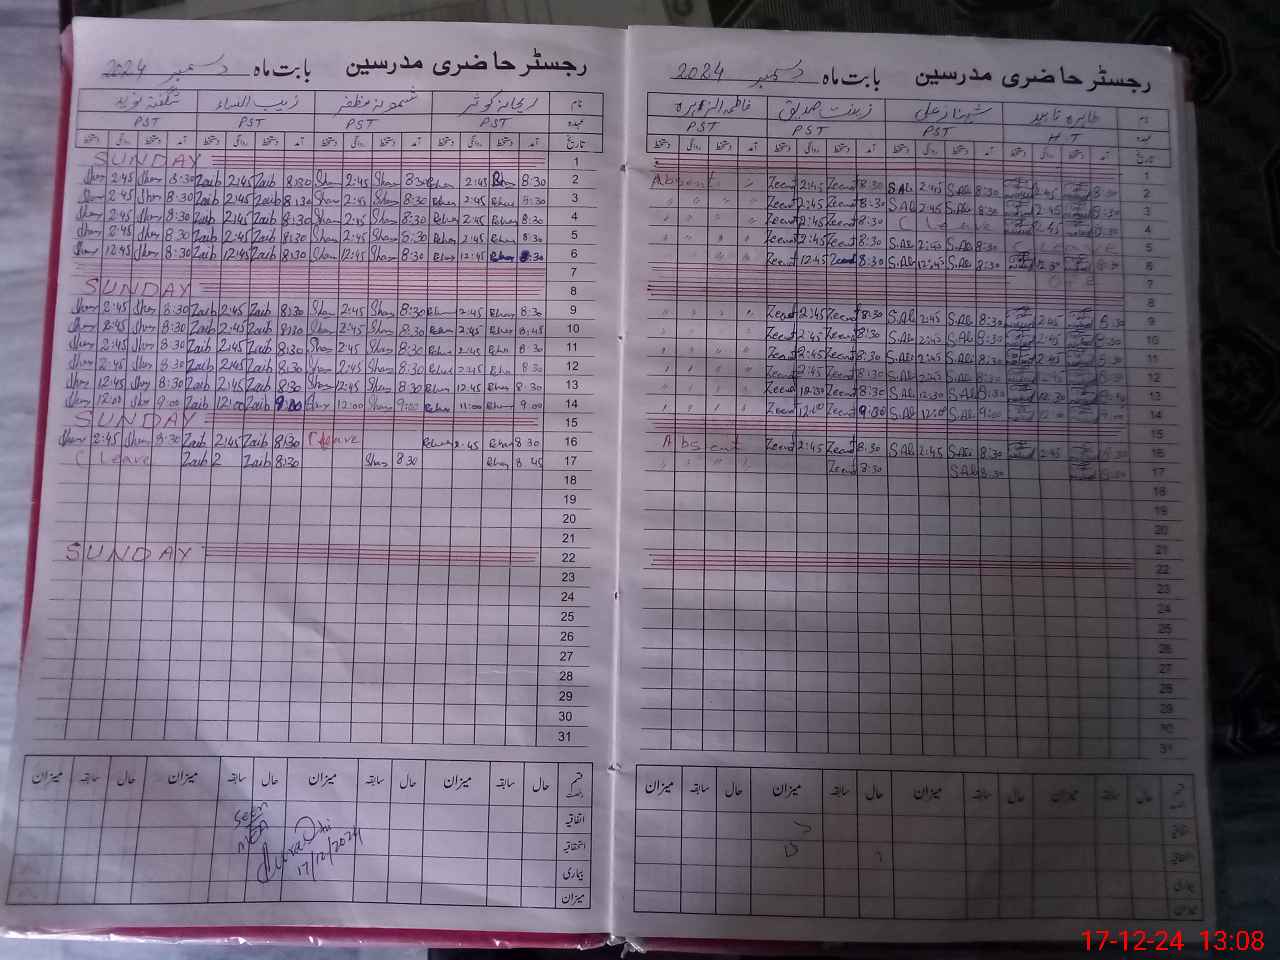 رجسٹر حاضری مدرسین بابت ماہ دسمبر 2024
نام طاہرہ ناہید شہناز علی زینت صدیق فاطمہ الزہرہ
عہدہ H.T PST PST PST
تاریخ آمد دستخط روانگی دستخط آمد دستخط روانگی دستخط آمد دستخط روانگی دستخط آمد دستخط روانگی دستخط
1
2 8:30 2:45 8:30 S.Ali 2:45 S.Ali 8:30 Zeenat 2:45 Zeenat Absent
3 8:30 2:45 8:30 S.Ali 2:45 S.Ali 8:30 Zeenat 2:45 Zeenat
4 8:30 2:45 C Leave 8:30 Zeenat 2:45 Zeenat
5 C Leave 8:30 S.Ali 2:45 S.Ali 8:30 Zeenat 2:45 Zeenat
6 8:30 12:30 8:30 S.Ali 12:45 S.Ali 8:30 Zeenat 12:45 Zeenat
7
8
9 8:30 2:45 8:30 S.Ali 2:45 S.Ali 8:30 Zeenat 2:45 Zeenat
10 8:30 2:45 8:30 S.Ali 2:45 S.Ali 8:30 Zeenat 2:45 Zeenat
11 8:30 2:45 8:30 S.Ali 2:45 S.Ali 8:30 Zeenat 2:45 Zeenat
12 8:30 2:45 8:30 S.Ali 2:45 S.Ali 8:30 Zeenat 2:45 Zeenat
13 8:30 12:30 8:30 S.Ali 12:30 S.Ali 8:30 Zeenat 12:30 Zeenat
14 9:00 12:00 9:00 S.Ali 12:00 S.Ali 9:30 Zeenat 12:00 Zeenat
15
16 8:30 2:45 8:30 S.Ali 2:45 S.Ali 8:30 Zeenat 2:45 Zeenat Absent
17 8:30 8:30 S.Ali 8:30 Zeenat
18
19
20
21
22
23
24
25
26
27
28
29
30
31
قسم رخصت حال سابقہ میزان حال سابقہ میزان حال سابقہ میزان حال سابقہ میزان
اتفاقیہ
استحقاقیہ
بیماری
میزان
رجسٹر حاضری مدرسین بابت ماہ دسمبر 2024
نام ریحانہ کوثر شمونہ مظفر زیب النساء شگفتہ نوید
عہدہ PST PST PST PST
تاریخ آمد دستخط روانگی دستخط آمد دستخط روانگی دستخط آمد دستخط روانگی دستخط آمد دستخط روانگی دستخط
1 SUNDAY
2 8:30 2:45 8:30 Sham 2:45 Sham 8:30 Zaib 2:45 Zaib 8:30 2:45
3 8:30 2:45 8:30 Sham 2:45 Sham 8:30 Zaib 2:45 Zaib 8:30 2:45
4 8:30 2:45 8:30 Sham 2:45 Sham 8:30 Zaib 2:45 Zaib 8:30 2:45
5 8:30 2:45 8:30 Sham 2:45 Sham 8:30 Zaib 2:45 Zaib 8:30 2:45
6 8:30 12:45 8:30 Sham 12:45 Sham 8:30 Zaib 12:45 Zaib 8:30 12:45
7
8 SUNDAY
9 8:30 2:45 8:30 Sham 2:45 Sham 8:30 Zaib 2:45 Zaib 8:30 2:45
10 8:45 2:45 8:30 Sham 2:45 Sham 8:30 Zaib 2:45 Zaib 8:30 2:45
11 8:30 2:45 8:30 Sham 2:45 Sham 8:30 Zaib 2:45 Zaib 8:30 2:45
12 8:30 2:45 8:30 Sham 2:45 Sham 8:30 Zaib 2:45 Zaib 8:30 2:45
13 8:30 12:45 8:30 Sham 12:45 Sham 8:30 Zaib 2:45 Zaib 8:30 12:45
14 9:00 11:00 9:00 Sham 12:00 Sham 9:00 Zaib 12:00 Zaib 9:00 12:00
15 SUNDAY
16 8:30 2:45 Leave 8:30 Zaib 2:45 Zaib 8:30 2:45
17 8:45 8:30 Sham 8:30 Zaib 2 Zaib C Leave
18
19
20
21
22 SUNDAY
23
24
25
26
27
28
29
30
31
قسم رخصت حال سابقہ میزان حال سابقہ میزان حال سابقہ میزان حال سابقہ میزان
اتفاقیہ
استحقاقیہ
بیماری
میزان
Seen
MEA
17/12/2024
17-12-24 13:08